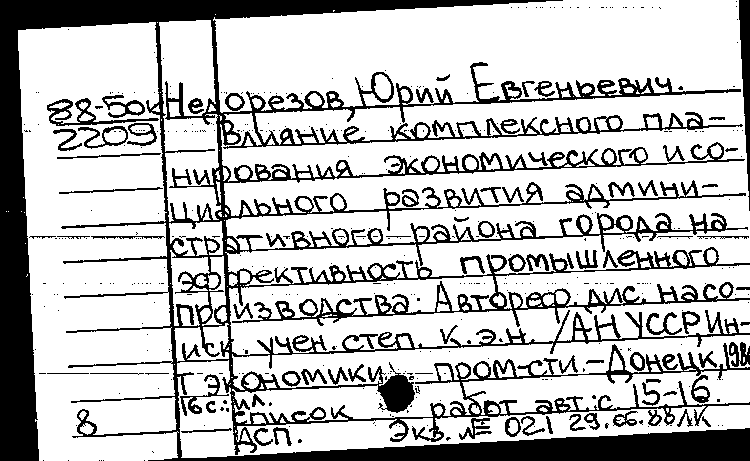 88-50к Недорезов, Юрий Евгеньевич.
2209 Влияние комплексного пла-
нирования экономического и со-
циального развития админи-
стративного района города на
эффективность промышленного
производства: Автореф. дис. на со-
иск. учен. степ. к.э.н. /АН УССР, Ин-
т экономики пром-сти. - Донецк,
16 с.: ил.
8 список работ авт.: с 15-16.
ДСП. Экз. № 021 29.06.88 ЛК